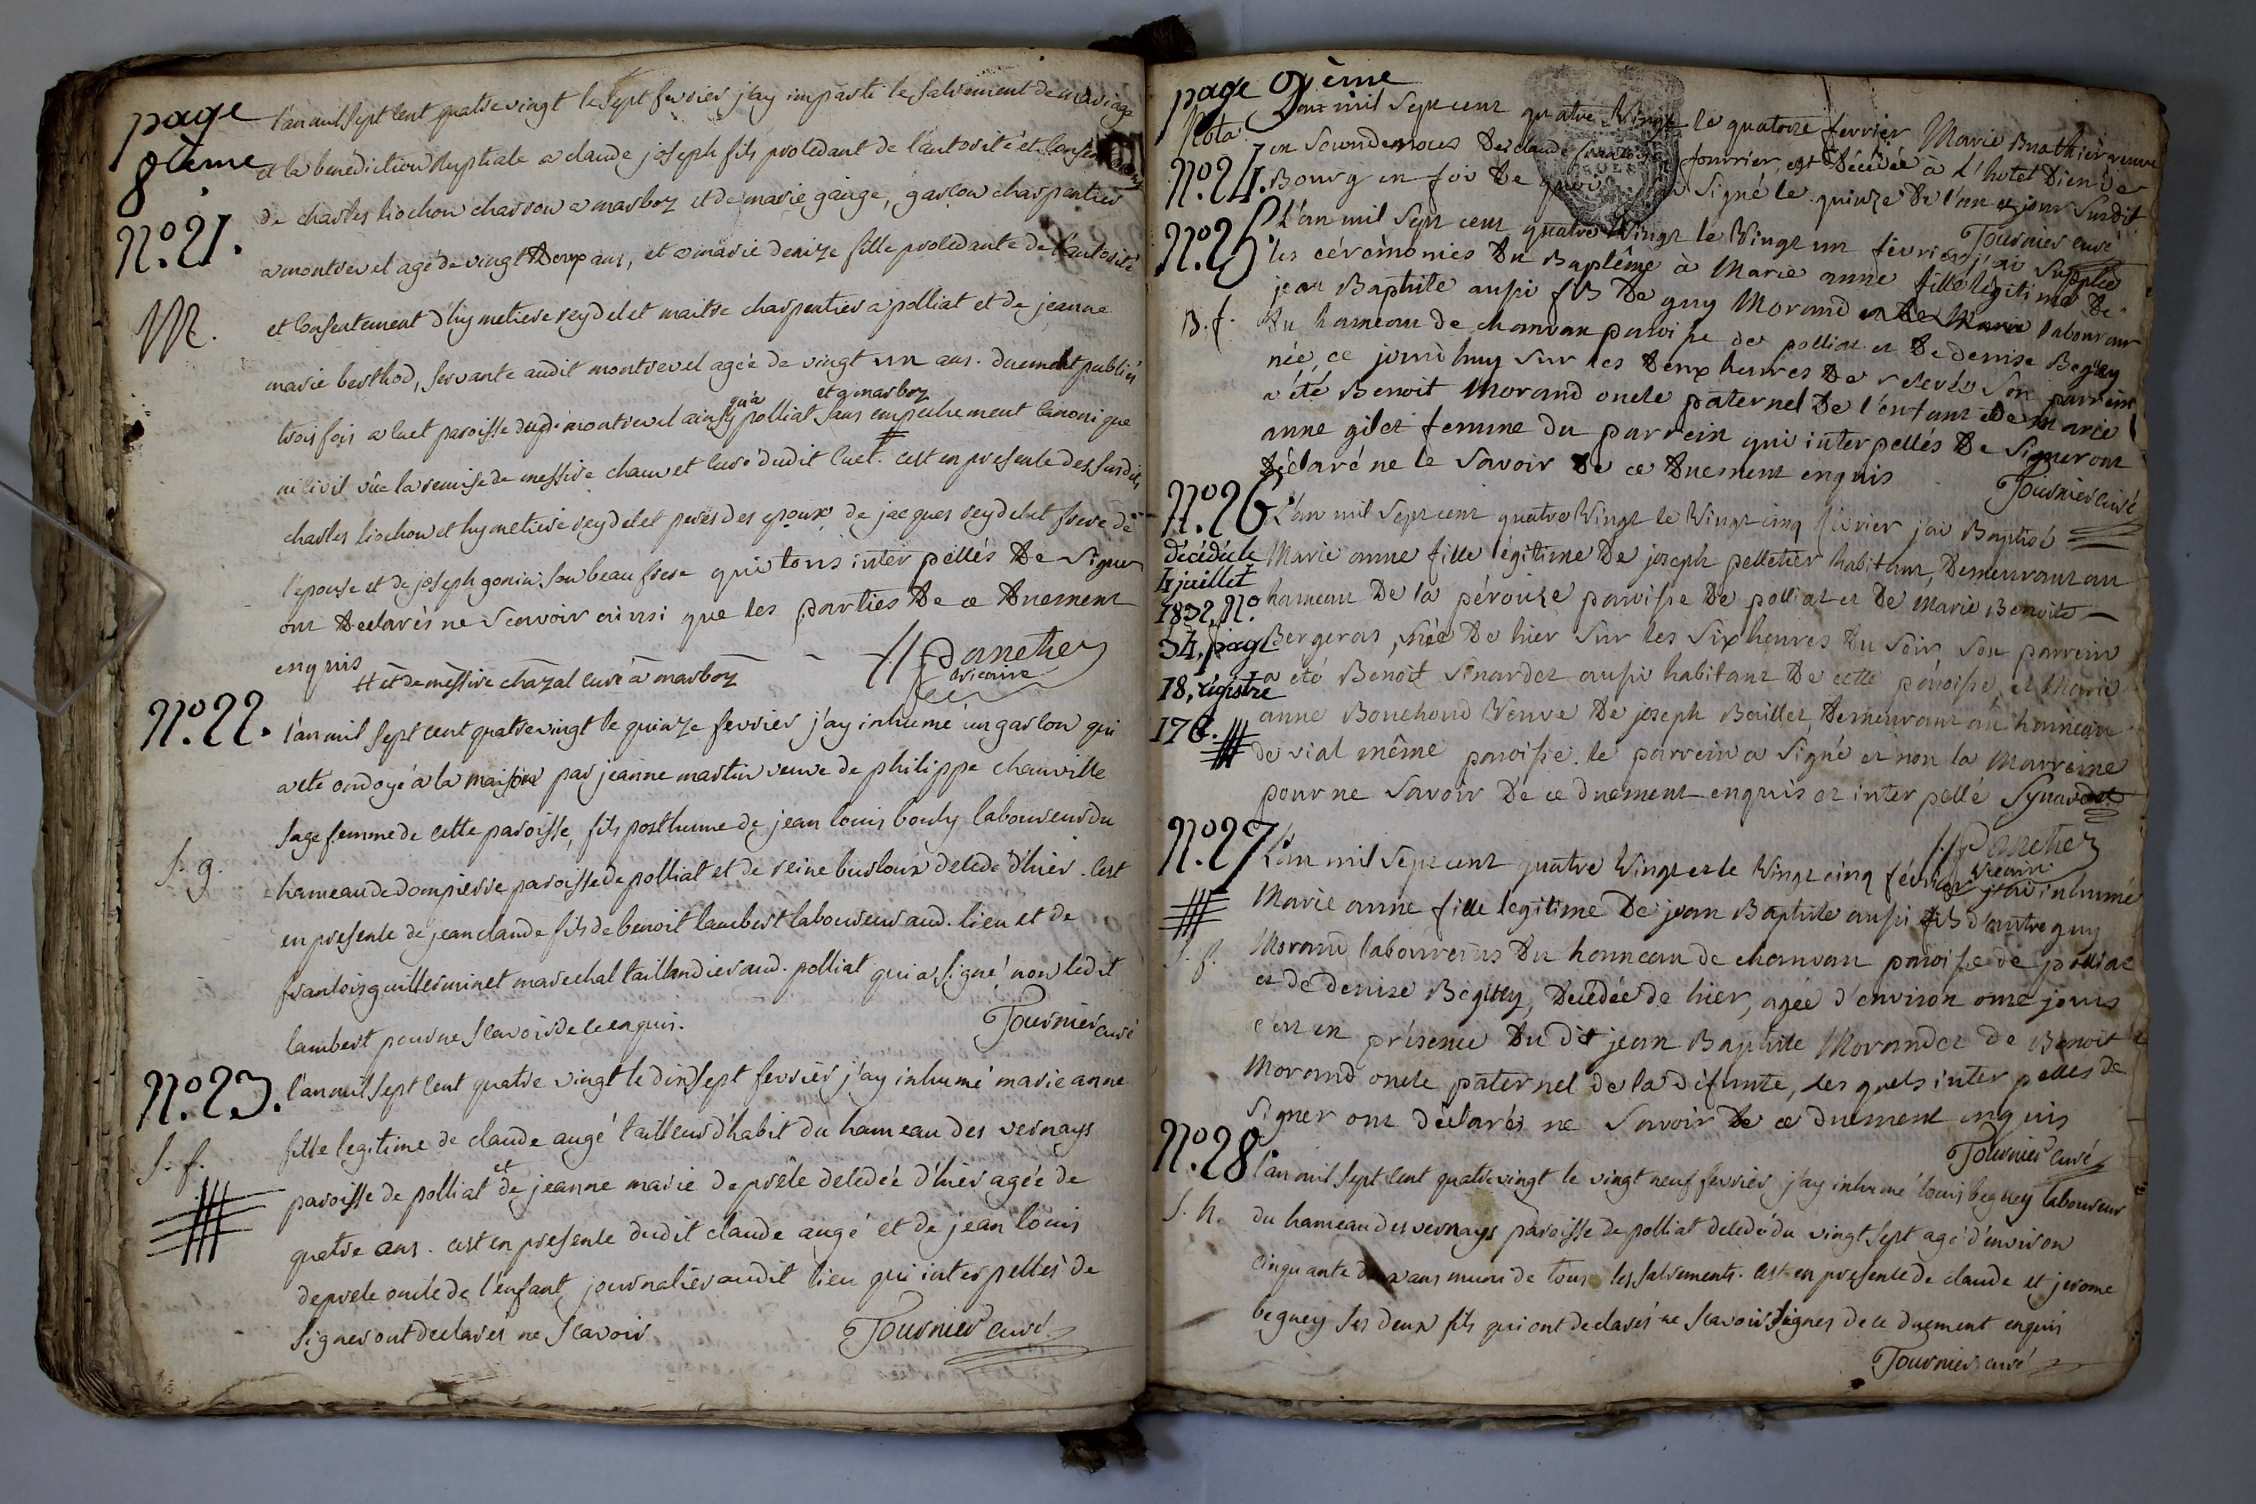 page
8ième
l'an mil sept cent quatre vingt le sept fevrier j'ay imparti le sacrement de mariage
et la benediction nuptiale a claude joseph fils procedant de l'autorité et consentement
de charles liochon charron a marboz et de marie gauge, garcon charpentier
n.º 21.
a montrevel agé de vingt deux ans, et a marie denize fille procedante de l'autorité
M.
et consentement d'hymetiere reydelet maitre charpentier a polliat et de jeanne
marie berthod, servante audit montrevel agée de vingt un ans. duement publiés
qu'a et a marboz
trois fois a cuet paroisse dudi montrevel ainsy polliat sans empechement canonique
ni civil vûe la remise de messire chauvet curé dudit cuet. cest en presence des susdits
charles liochon et hymetiere reydelet peres des epoux, de jacques reydelet frere de
l'epouse et de joseph gonin son beau frere qui tous interpellés de signer
ont declarés ne scavoir ainsi que les parties de ce duement
enquis
# et de messire chazal curé a marboz
Panethez
vicaire
n.º 22.
l'an mil sept cent quatre vingt le quinze fevrier j'ay inhumé un garcon qui
a eté ondoyé a la maison par jeanne martin veuve de philippe chauville
sage femme de cette paroisse, fils posthume de jean louis bouly laboureur du
S. g.
hameau de dompierre paroisse de polliat et de reine burloux decede d'hier. cest
en presence de jean claude fils de benoit lambert laboureur aud. lieu et de
francois guillerminet marechal taillandier aud. polliat qui a signé non ledit
lambert pour ne scavoir de ce enquis.
Tournier curé
n.º 23.
l'an mil sept cent quatre vingt le dix sept fevrier j'ay inhumé marie anne
S. f.
fille legitime de claude augé tailleur d'habit du hameau des vernays
et
paroisse de polliat de jeanne marie deprêle decedée d'hier agée de
quatre ans. cest en presence dudit claude augé et de jean louis
deprele oncle de l'enfant, journalier audit lieu qui interpellés de
signer ont declarés ne scavoir
Tournier curé
page 9ième
Nota
L'an mil sept cent quatre vingt le quatorze fevrier Marie Brathier veuve
en secondes noces de claude fourrier, est décédée à l'hotel Dieu de
n.º 24.
Bourg en foi de quoi signé le quinze de l'an et jour susdit
Tournier curé
n.º 25
L'an mil sept cent quatre vingt le vingt un février j'ai supplée
les cérémonies du Baptême à Marie anne fille légitime de
jean Baptiste aussi fils de guy Morand laboureur
B. f.
du hameau de chanvan paroisse de polliat et de denise Beguey
née ce jourd'huy sur les deux heures de relevée son parrein
a été Benoit Morand oncle paternel de l'enfant et Marie
anne gilet femme du parrein qui interpellés de signer ont
déclaré ne le savoir de ce duement enquis
Tournier curé
n.º 26
L'an mil sept cent quatre vingt le vingt cinq février j'ai Baptisé
décédée le
4 juillet
1832, N.º
34, page
18, régistre
176.
Marie anne fille légitime de joseph pelletier habitant, demeurant au
hameau de la pérouse paroisse de polliat et de Marie Benoite
Bergeron, née de hier sur les six heures du soir son parrein
a été Benoit Sinardet aussi habitant de cette paroisse, et Marie
anne Bouchond veuve de joseph Baillet, demeurant au hameau
de vial même paroisse. le parrein a signé et non la Marreine
pour ne savoir de ce duement enquis et interpellé Synardet
Panethez
vicaire
n.º 27
L'an mil sept cent quatre vingt et le vingt cinq février j'ai inhumé
Marie anne fille legitime de jean Baptiste aussi fils d'autre guy
S. f.
Morand laboureurs du hameau de chanvan paroisse de polliat
et de denise Béguey, décédée de hier, agée d'environ onze jours
c'est en présence du dit jean Baptiste Morand et de Benoit
Morand oncle paternel de la défunte, lesquels interpellés de
signer ont déclarés ne savoir de ce duement enquis
Tournier curé
n.º 28
l'an mil sept cent quatre vingt le vingt neuf fevrier j'ay inhumé louis beguey laboureur
S. h.
du hameau des vernays paroisse de polliat decedé du vingt sept agé d'environ
cinquante deux ans muni de tous les sacrements. cest en presence de claude et jerome
beguey ses deux fils qui ont declarés ne scavoir signer de ce duement enquis
Tournier curé